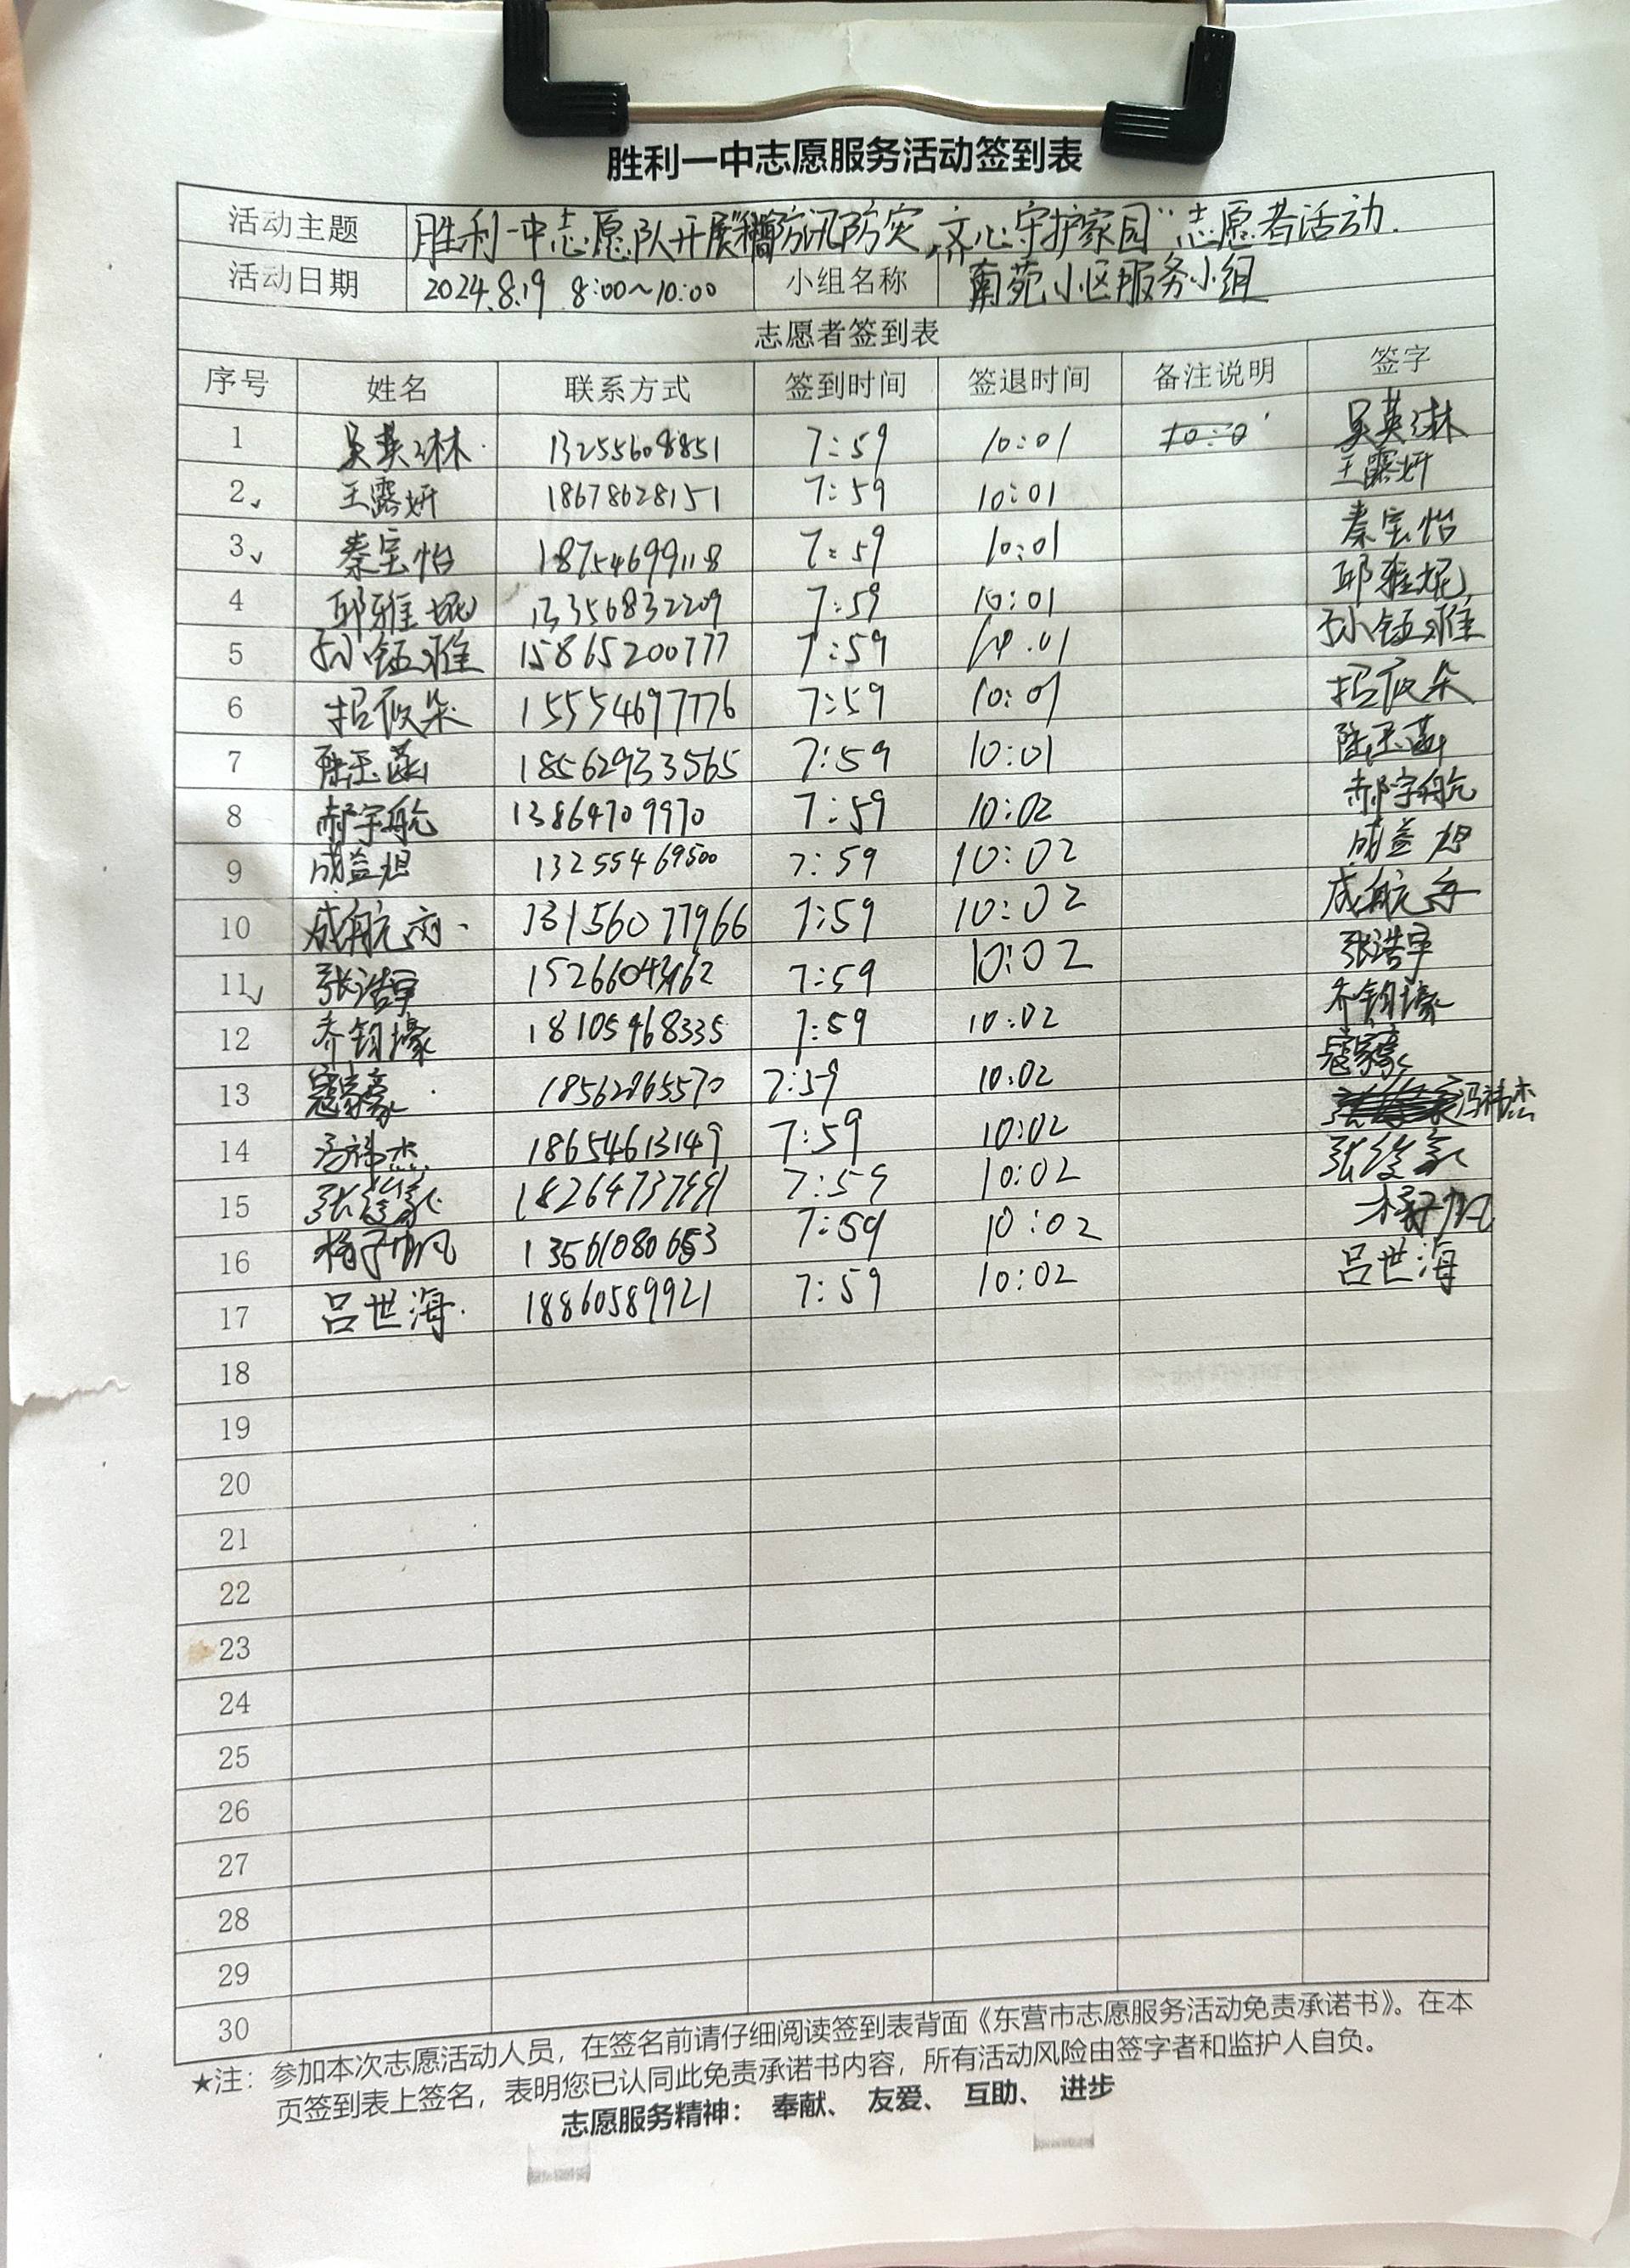 胜利一中志愿服务活动签到表
活动主题 胜利一中志愿队开展"积极防汛防灾,齐心守护家园"志愿者活动.
活动日期 2024.8.19 8:00~10:00 小组名称 南苑小区服务小组
志愿者签到表
序号 姓名 联系方式 签到时间 签退时间 备注说明 签字
1 吴英琳 13255608851 7:59 10:01 吴英琳
2 王露妍 18678628151 7:59 10:01 王露妍
3 秦宝怡 18754699118 7:59 10:01 秦宝怡
4 邱雅妮 13356832209 7:59 10:01 邱雅妮
5 孙钰雅 15865200777 7:59 10:01 孙钰雅
6 15554697776 7:59 10:01
7 陆玉菡 18562933565 7:59 10:01 陆玉菡
8 郝宇航 13864709970 7:59 10:02 郝宇航
9 成益旭 13255469500 7:59 10:02 成益旭
10 成航 13156077966 7:59 10:02 成航
11 张浩宇 7:59 10:02 张浩宇
12 乔钧壕 18105468335 7:59 10:02 乔钧壕
13 寇家豪 18562865570 7:59 10:02 寇家豪
14 冯祎杰 18654613149 7:59 10:02 冯祎杰
15 张俊豪 7:59 10:02 张俊豪
16 杨子帆 13561080653 7:59 10:02 杨子帆
17 吕世海 18860589921 7:59 10:02 吕世海
18
19
20
21
22
23
24
25
26
27
28
29
30
★注：参加本次志愿活动人员，在签名前请仔细阅读签到表背面《东营市志愿服务活动免责承诺书》。在本
页签到表上签名，表明您已认同此免责承诺书内容，所有活动风险由签字者和监护人自负。
志愿服务精神： 奉献、 友爱、 互助、 进步